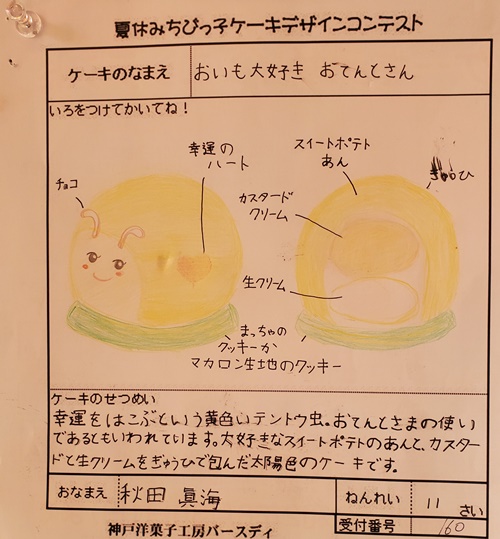 夏休みちびっ子ケーキデザインコンテスト
ケーキのなまえ おいも大好き おてんとさん
いろをつけてかいてね!
チョコ
幸運の
ハート
スイートポテト
あん
ぎゅうひ
カスタード
クリーム
生クリーム
まっちゃの
クッキーか
マカロン生地のクッキー
ケーキのせつめい
幸運をはこぶという黄色いテントウ虫。おてんとさまの使い
であるともいわれています。大好きなスイートポテトのあんと、カスター
ドと生クリームをぎゅうひで包んだ太陽色のケーキです。
おなまえ 秋田 眞海 ねんれい 11 さい
神戸洋菓子工房バースディ 受付番号 160